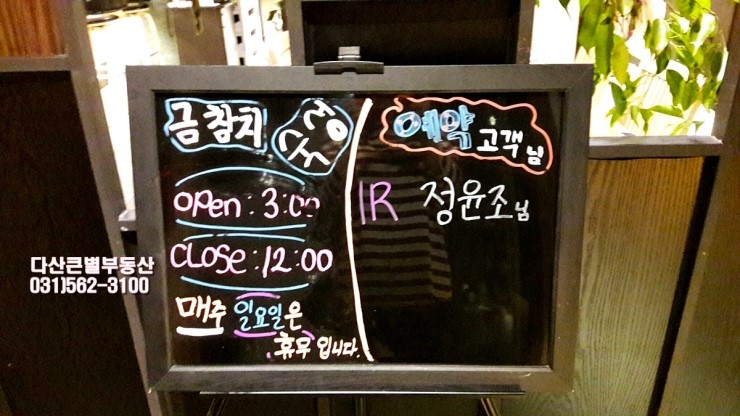 금참치
OPEN : 3:00
CLOSE : 12:00
매주 일요일은
휴무 입니다.
예약 고객님
1R 정윤조님
다산큰별부동산
031)562-3100